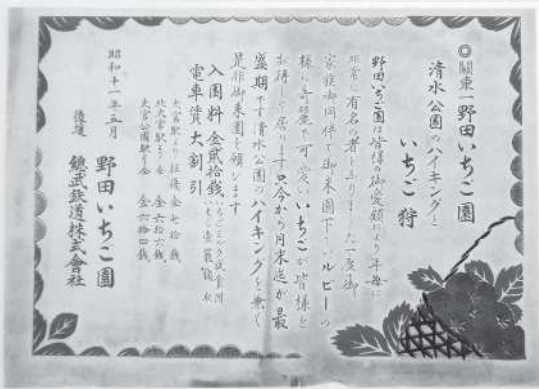 ◎關東一野田いちご園
清水公園のハイキングと
いちご狩
野田いちご園は皆様の御愛顧により年毎に
非常に有名の者となりました一度御
家族御同伴で御来園下さいルビーの
様に奇麗で可愛いいちごが皆様を
お待して居ります只今から月末迄が最
盛期です清水公園のハイキングを兼ね
是非御来園を願ひます
入園料 金貳拾銭
電車賃大割引
大宮駅より往復 金七拾銭
北大宮駅より 金 金六拾六銭
大宮公園駅より 金六拾四銭
昭和十一年五月
野田いちご園
後援 總武鉄道株式會社